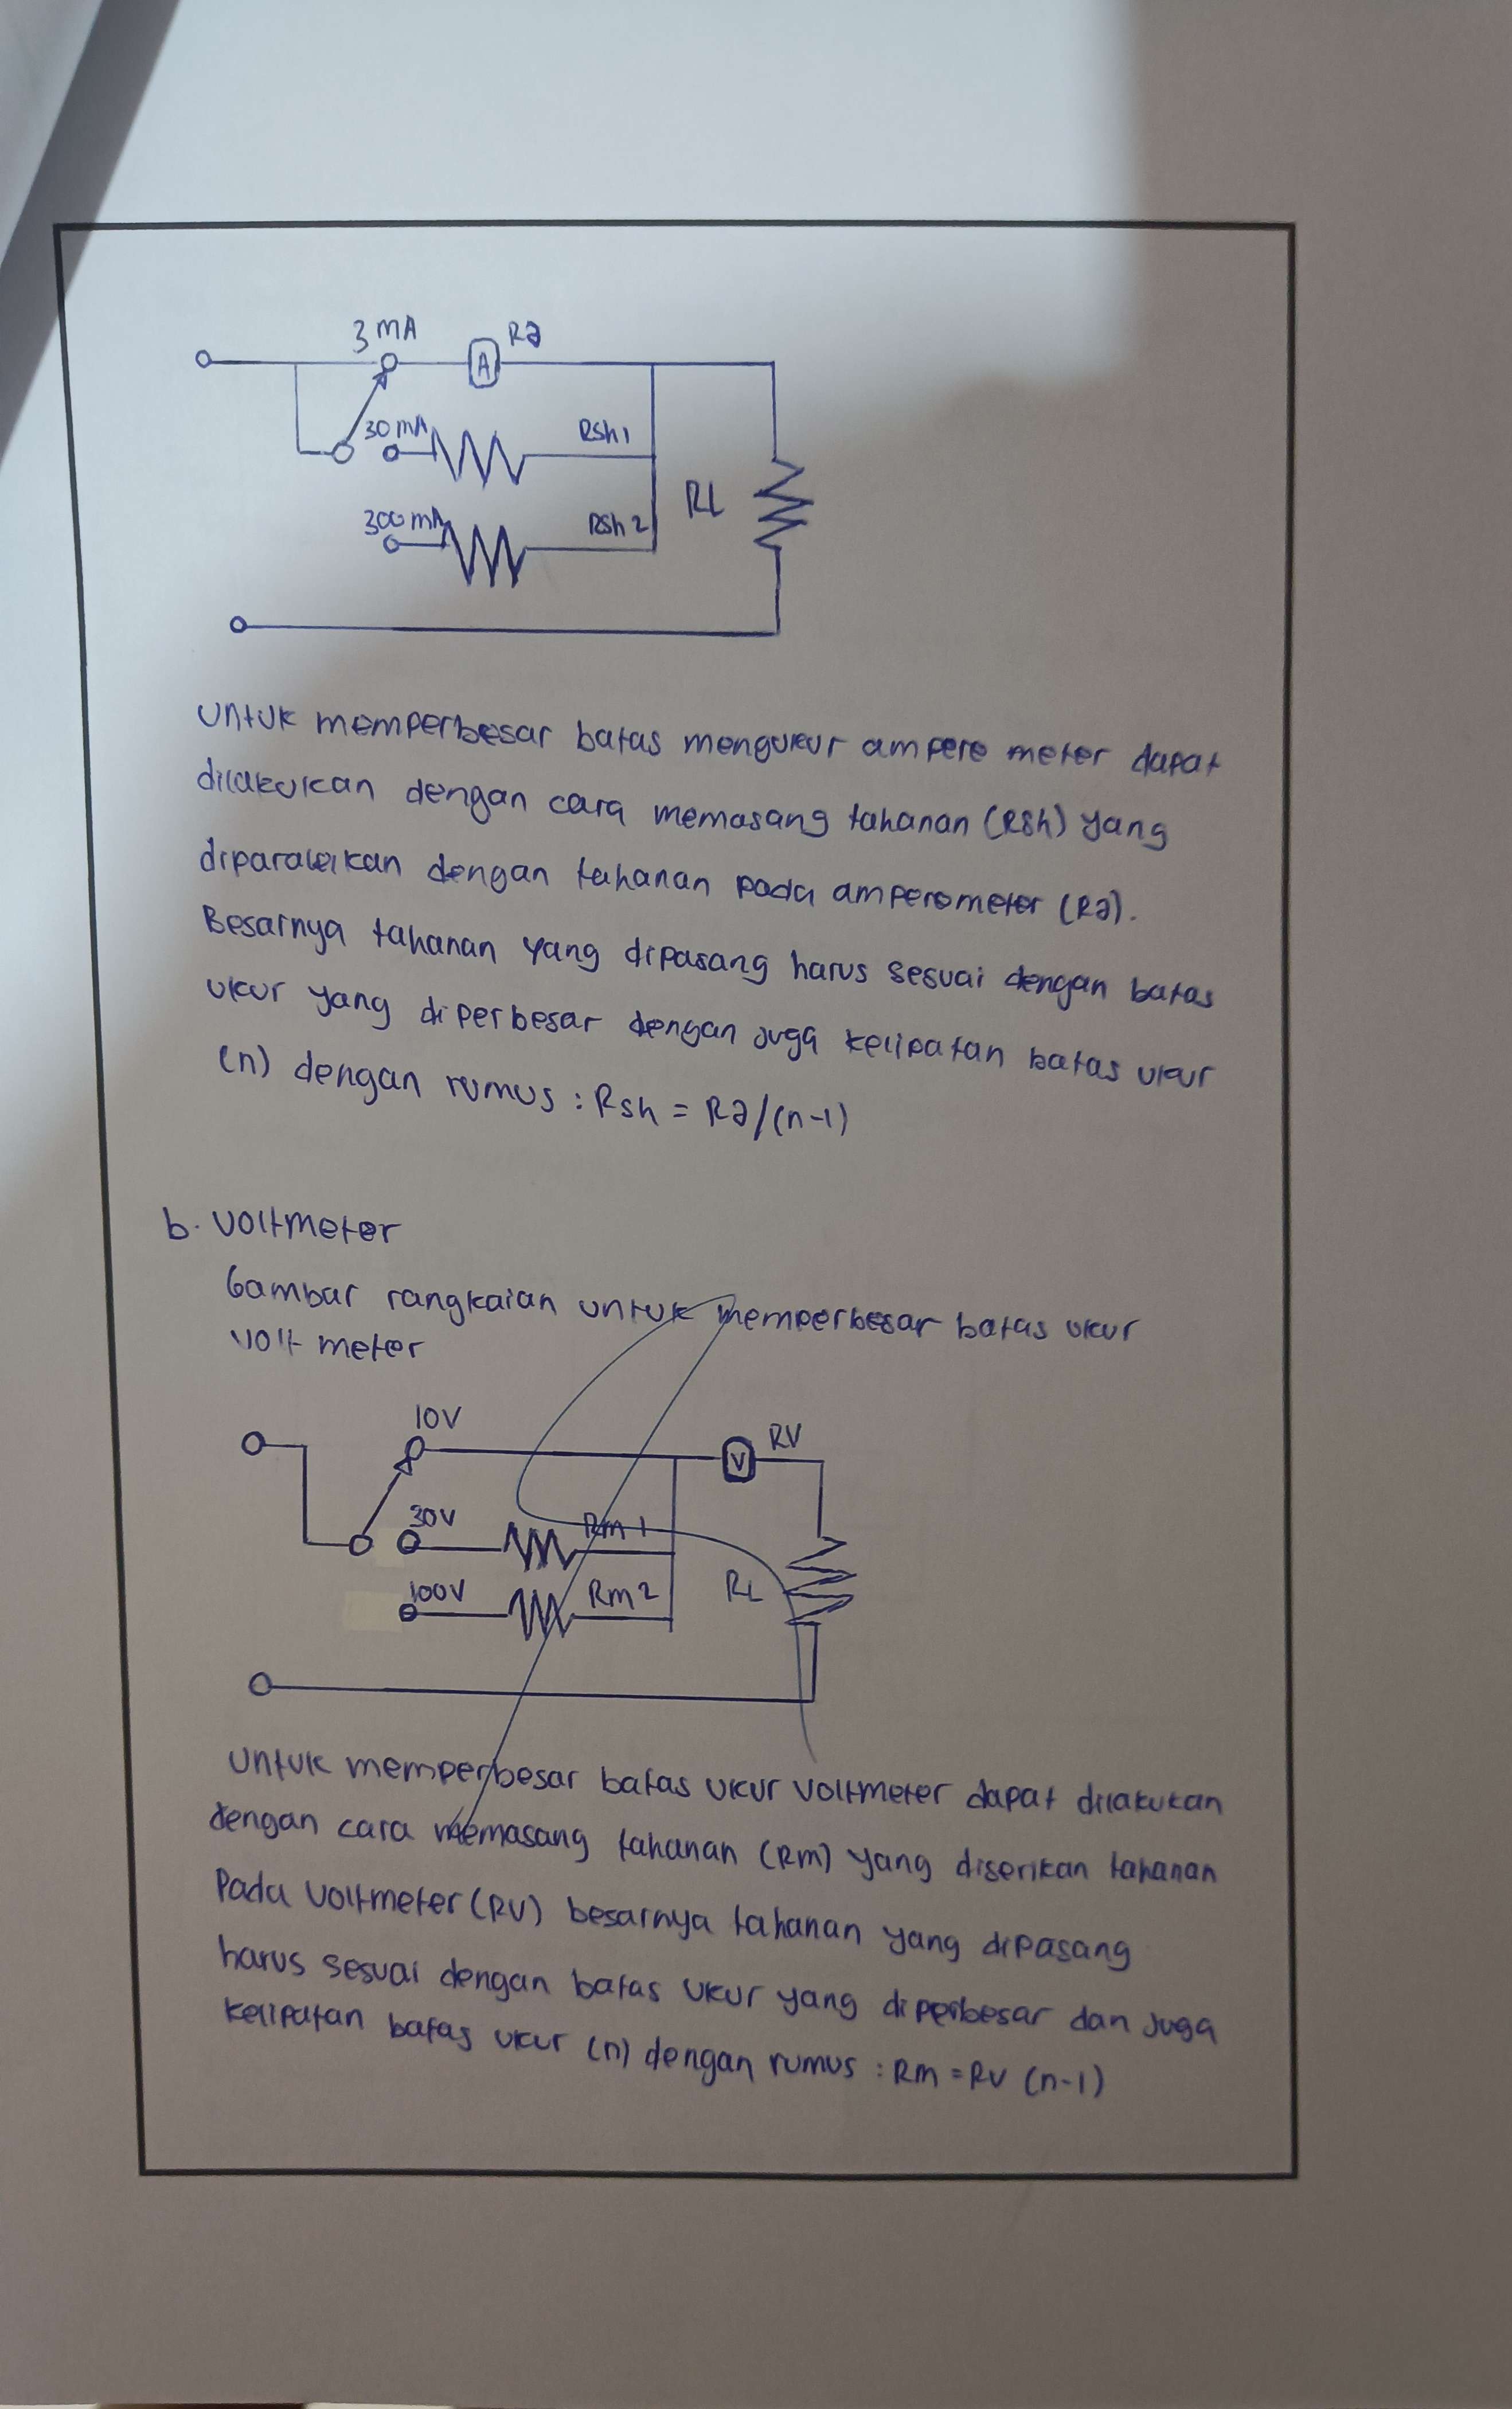 3 mA
Ra
A
30 mA
Rsh1
300 mA
Rsh2
RL
Untuk memperbesar batas mengukur ampere meter dapat
dilakukan dengan cara memasang tahanan (Rsh) yang
diparalelkan dengan tahanan pada amperemeter (Ra).
Besarnya tahanan yang dipasang harus sesuai dengan batas
ukur yang diperbesar dengan juga kelipatan batas ukur
(n) dengan rumus : Rsh = Ra/(n-1)
b. Voltmeter
Gambar rangkaian untuk memperbesar batas ukur
Volt meter
10V
V
RV
30V
Rm1
100V
Rm2
RL
Untuk memperbesar batas ukur voltmeter dapat dilakukan
dengan cara memasang tahanan (Rm) yang diserikan tahanan
Pada Voltmeter (RV) besarnya tahanan yang dipasang
harus sesuai dengan batas ukur yang diperbesar dan juga
kelipatan batas ukur (n) dengan rumus : Rm = RV (n-1)